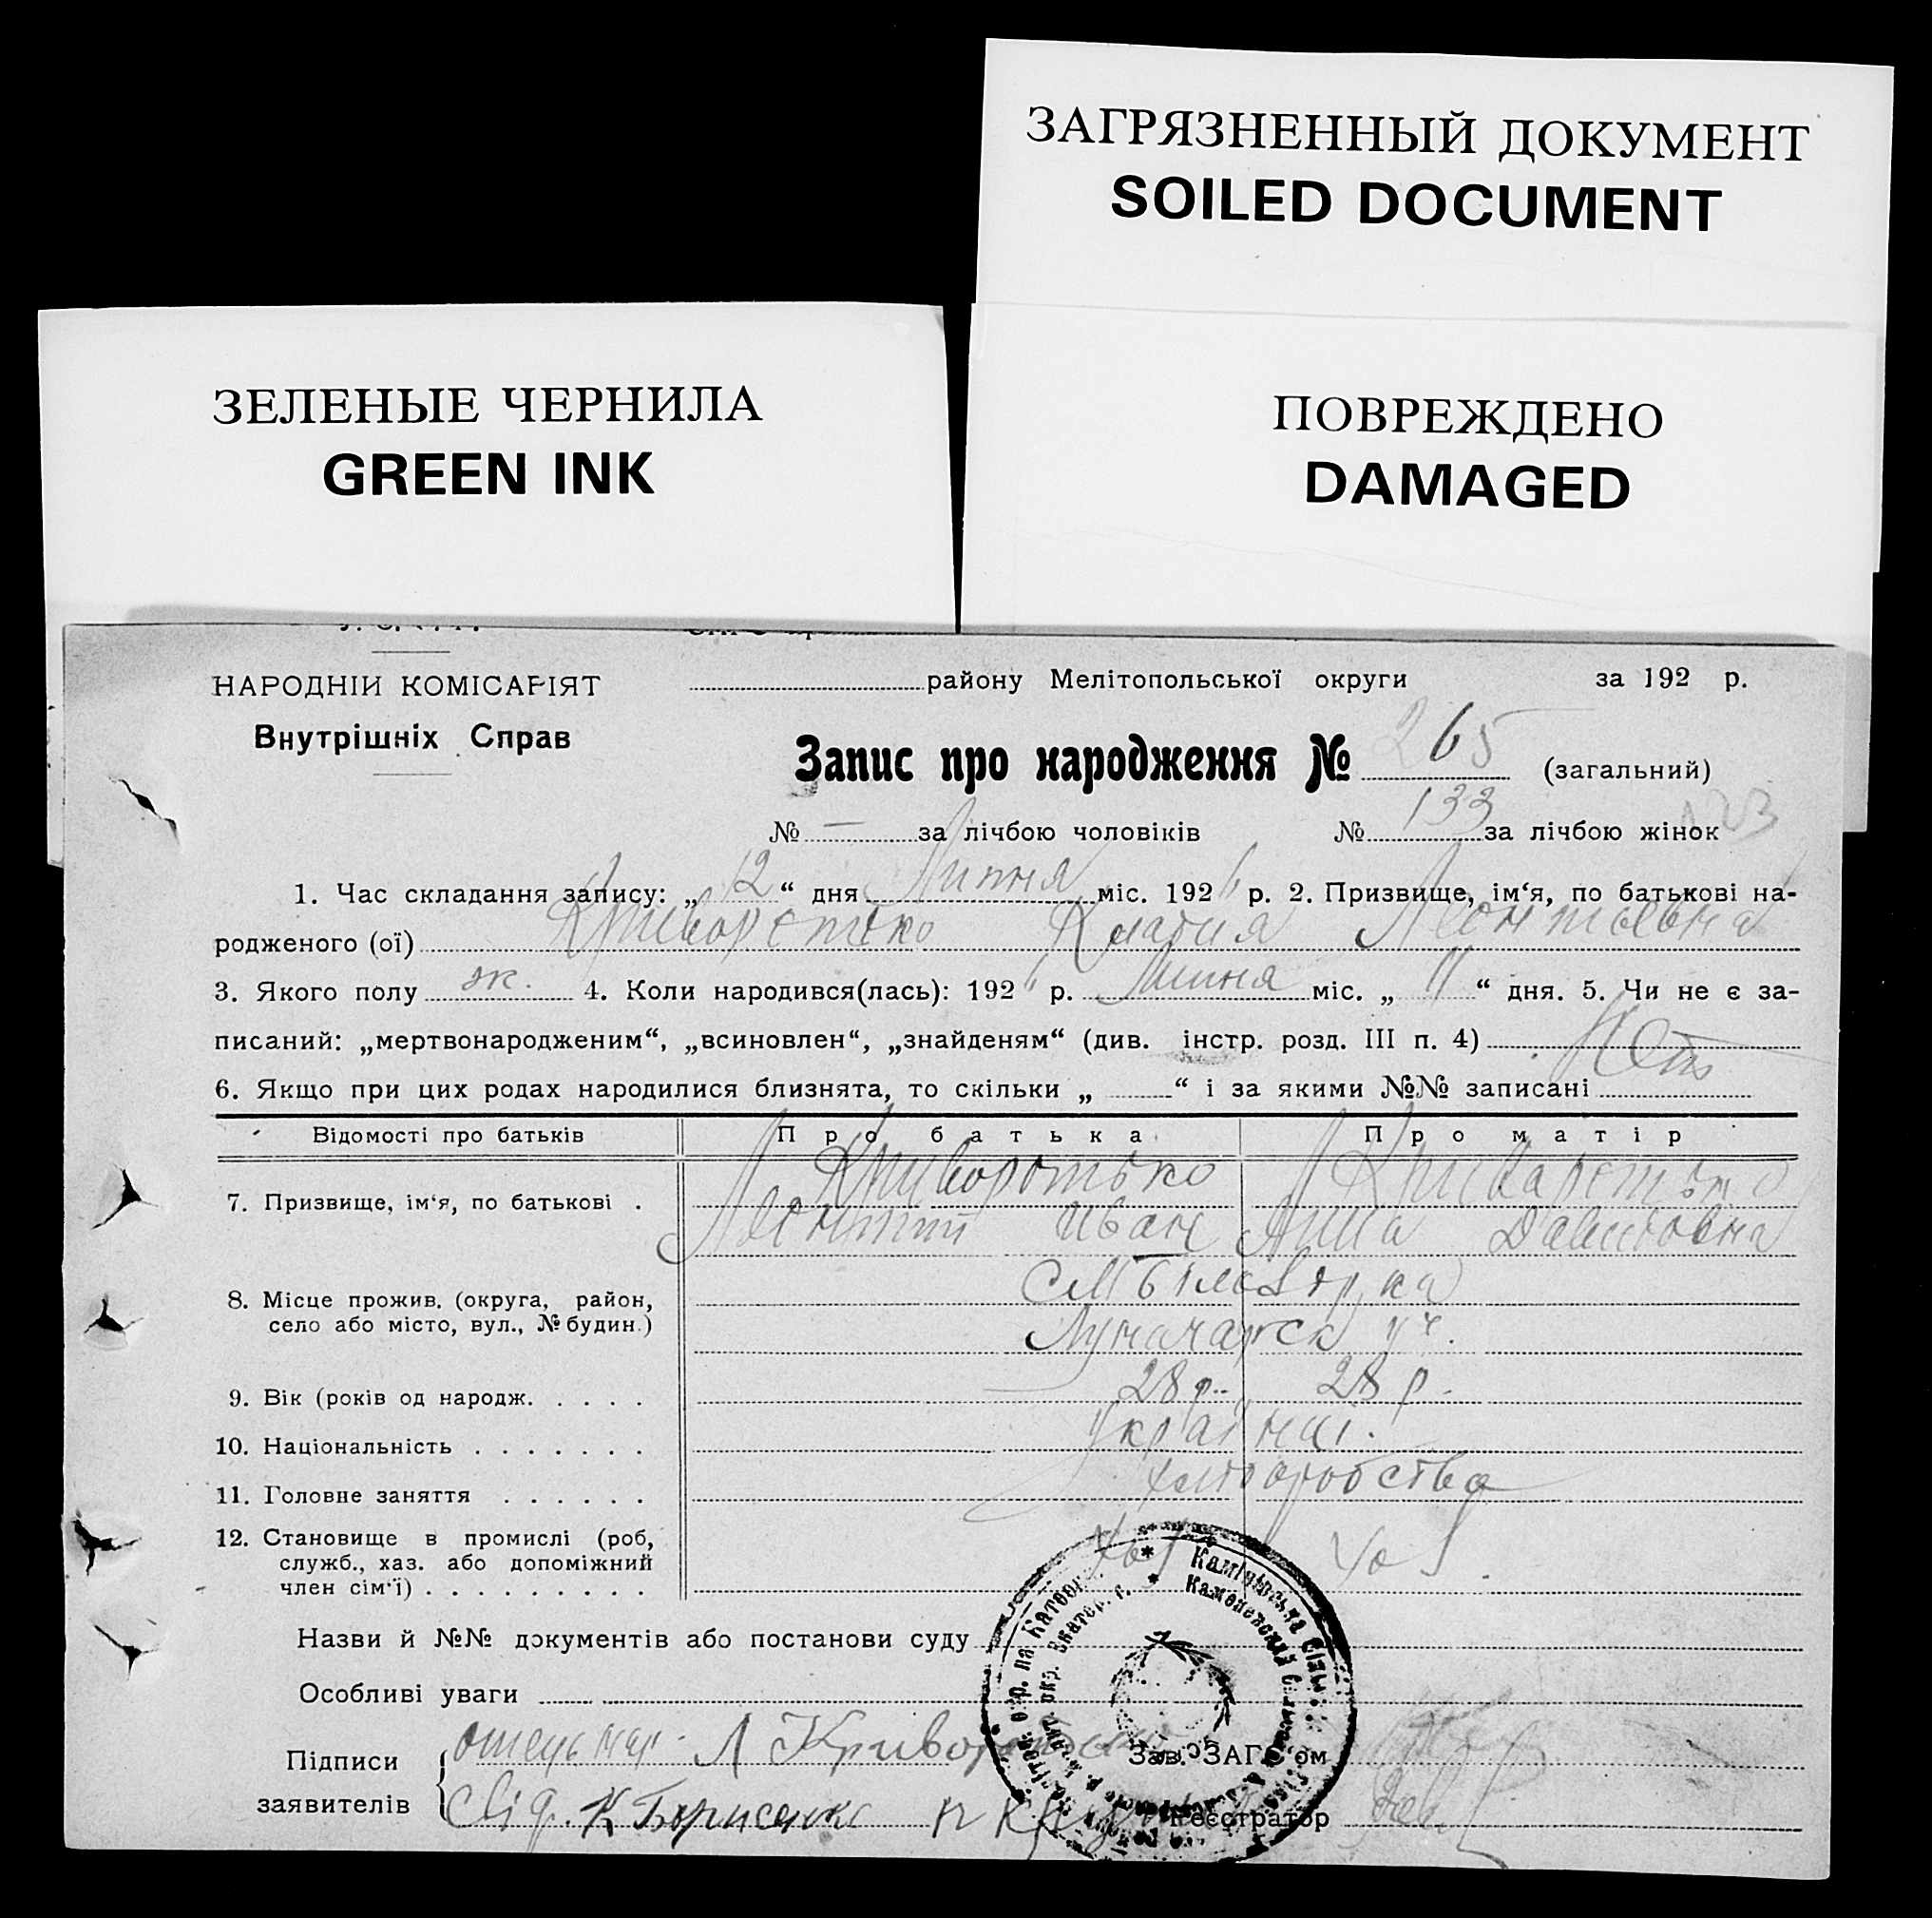 ЗАГРЯЗНЕННЫЙ ДОКУМЕНТ
SOILED DOCUMENT
ЗЕЛЕНЫЕ ЧЕРНИЛА
GREEN INK
ПОВРЕЖДЕНО
DAMAGED
НАРОДНІЙ КОМІСАРІЯТ
Внутрішніх Справ
району Мелітопольської округи за 192 р.
Запис про народження № 265 (загальний)
№ — за лічбою чоловіків № 133 за лічбою жінок
1. Час складання запису: „12“ дня Липня міс. 1926 р. 2. Призвище, ім‘я, по батькові на-
родженого (ої) Криворотько Клавія Леонтьевна
3. Якого полу ж. 4. Коли народився(лась): 1926 р. Липня міс. „11“ дня. 5. Чи не є за-
писаний: „мертвонародженим“, „всиновлен“, „знайденям“ (див. інстр. розд. III п. 4) Нет
6. Якщо при цих родах народилися близнята, то скільки „ “ і за якими №№ записані
Відомості про батьків Про батька Про матір
7. Призвище, ім‘я, по батькові . Криворотько Криворотько
Леонтий Иван Анна Давидовна
8. Місце прожив. (округа, район,
село або місто, вул., № будин.)
Луначарск уч.
9. Вік (років од народж. . . . . 28 р. 28 р.
10. Національність . . . . . . . україн
11. Головне заняття . . . . . . хліборобство
12. Становище в промислі (роб,
служб., хаз. або допоміжний
член сім‘ї) . . . . . . . . .
Назви й №№ документів або постанови суду
Особливі уваги
Підписи отець Л Криворотько Зав. ЗАГС‘ом
заявителів Свід. К Борисенко Реєстратор